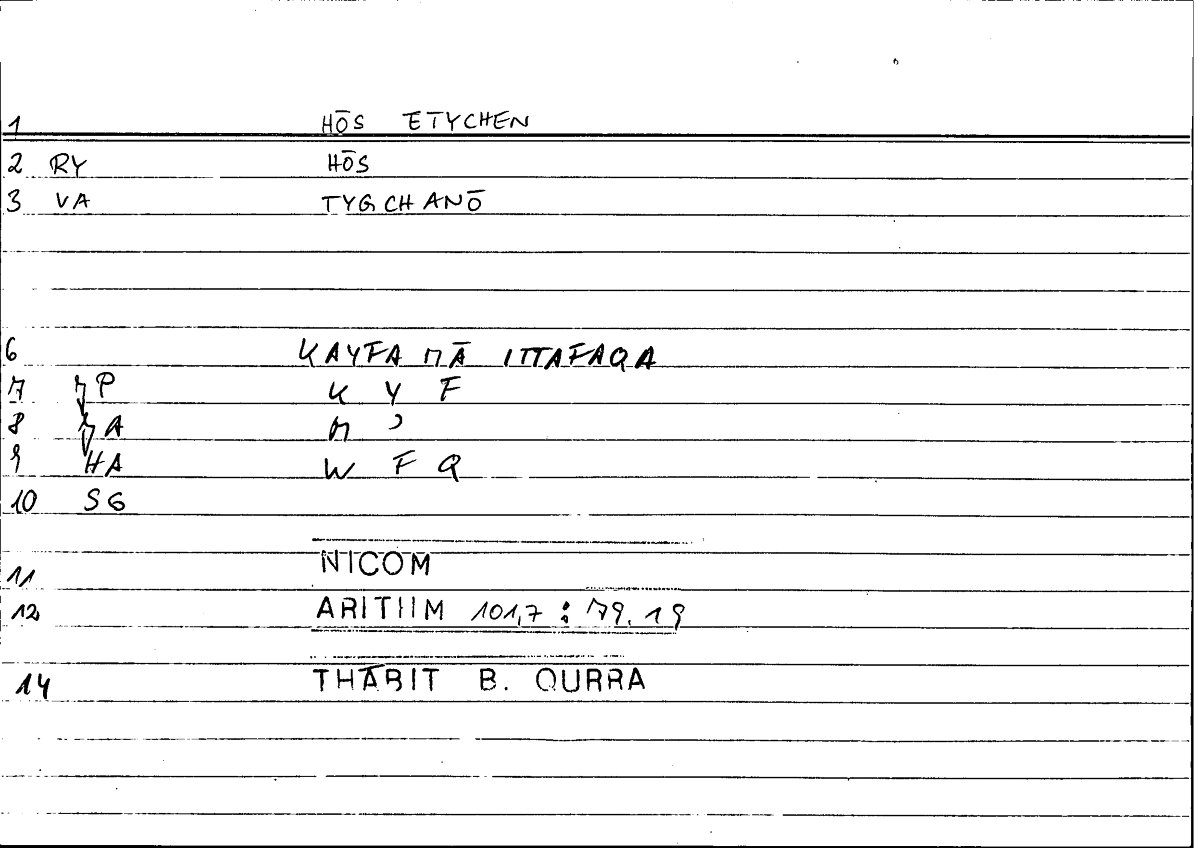 1 HŌS ETYCHEN
2 RY HŌS
3 VA TYGCHANŌ
6 KAYFA MĀ ITTAFAQA
7 P K Y F
8 A M ʾ
9 HA W F Q
10 SG
11 NICOM
12 ARITHM 101,7 : 79.19
14 THĀBIT B. QURRA